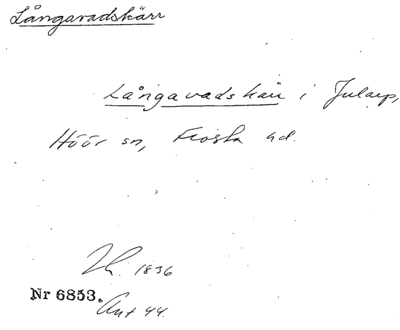 Långavadskärr
Långavadskärr i Jularp,
Höör sn, Frosta hd.
1836
Nr 6853.
Ant 44.